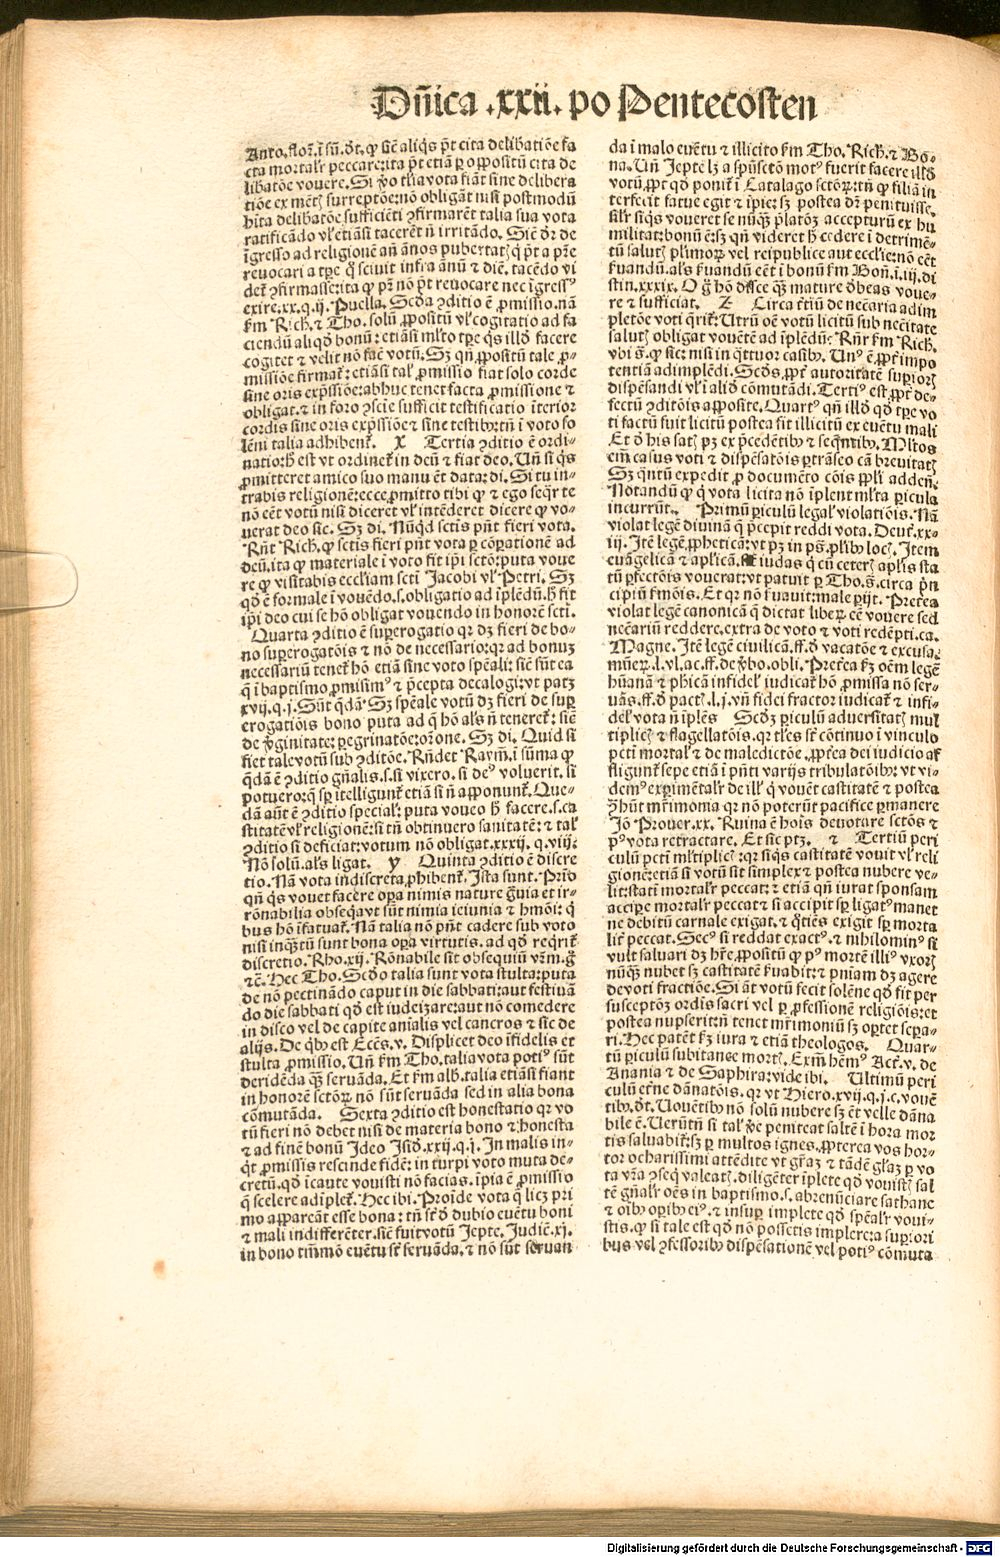 Dñica .xxii. po Pentecosten
Anto. flor̄. ĩ sũ. ðt. ꝙ sic̃ aliq̃s p̃t cita delibatiõe fa
cta mortalr̃ peccare: ita p̃t etiã ꝑ oppositũ cita de
libatõe vovere. Si ꝟo talia vota fiãt sine delibera
tiõe ex mẽtꝭ surreptõe: nõ obligãt nisi postmodũ
hita delibatõe sufficiẽti ꝯfirmarẽt talia sua vota
ratificãdo vl̃ etiãsi tacerẽt ñ irritãdo. Sic̃ ðr de
ĩgresso ad religionẽ añ ãnos pubertatꝭ q̃ p̃t a pr̃e
revocari a tp̃e q̃ scivit infra ãnũ ⁊ diẽ. tacẽdo vi
det̃ ꝯfirmasse: ita ꝙ pr̃ nõ p̃t revocare nec ĩgressꝰ
exire. xx. q. ij. Puella. Scða ꝯditio ẽ ꝓmissio. nã
k̃m Rich. ⁊ Tho. solũ ꝓpositũ vl̃ cogitatio ad fa
ciendũ aliqð bonũ: etiãsi ml̃to tp̃e q̃s illð facere
cogitet ⁊ velit nõ facẽ votũ. Sꝫ qñ ꝓpositũ tale ꝓ-
missiõe firmat̃: etiãsi tal̃ ꝓmissio fiat solo corde
sine oris exp̃ssiõe: adhuc tenet facta ꝓmissione ⁊
obligat. ⁊ in foro ꝯscie sufficit testificatio ĩterior
cordis sine oris exp̃ssiõe ⁊ sine testibꝰ: tñ ĩ voto so
lẽni talia adhibent̃. x Tertia ꝯditio ẽ ordi-
natio: h̃ est vt ordinet̃ in deũ ⁊ fiat deo. Uñ si q̃s
ꝓmitteret amico suo manu ẽt data: di. Si tu in-
trabis religionẽ: ecce ꝓmitto tibi ꝙ ⁊ ego seq̃r te
nõ eẽt votũ nisi diceret vl̃ intẽderet dicere ꝙ vo-
verat deo sic. Sꝫ di. Nũqð sctis pñt fieri vota.
Rñt Rich. ꝙ sctis fieri pñt vota ꝑ cõꝑationẽ ad
deũ. ita ꝙ materiale ĩ voto fit ip̃i sctõ: puta vove
re ꝙ visitabis eccliam scti Jacobi vl̃ Petri. Sꝫ
qð ẽ formale ĩ vovẽdo. s. obligatio ad ĩplẽdũ. h̃ fit
ip̃i deo cui se hõ obligat vovendo in honorẽ scti.
Quarta ꝯditio ẽ suꝑerogatio qr dꝫ fieri de bo-
no suꝑerogatõis ⁊ nõ de necessario: qr ad bonuꝫ
necessariũ tenet̃ hõ etiã sine voto spẽali: sic̃ sũt ea
q̃ ĩ baptismo ꝓmisimꝰ ⁊ p̃cepta decalogi: vt patꝫ
xvij. q. j. Sũt q̃dã. Sꝫ spẽale votũ dꝫ fieri de suꝑ
erogatiõis bono puta ad q̃ hõ als̃ ñ teneret̃: sic̃
de ꝟginitate: ꝑegrinatõe: orõne. Sꝫ di. Quid si
fiet tale votũ sub ꝯditõe. Rñdet Raym̃. ĩ sũma ꝙ
q̃dã ẽ ꝯditio gñalis. s. si vixero. si deꝰ voluerit. si
potuero: q̃ sp̃ ĩtelligunt̃ etiã si ñ apponunt̃. Que-
dã aũt ẽ ꝯditio special̃: puta voveo h̃ facere. s. ca
stitatẽ vl̃ religionẽ: si tñ obtinuero sanitatẽ: ⁊ tal̃
ꝯditio si deficiat: votum nõ obligat. xxxij. q. viij.
Nõ solũ. als̃ ligat. y Quinta ꝯditio ẽ discre
tio. Nã vota indiscreta ꝓhibent̃. Ista sunt. Prĩo
qñ q̃s vovet facere oꝑa nimis nature gravia et ir-
rõnabilia obseq̃a vt sũt nimia ieiunia ⁊ hmõi: q̃
bus hõ ĩfatuat̃. Nã talia nõ pñt cadere sub voto
nisi inq̃tũ sunt bona oꝑa virtutis. ad qð req̃rit̃
discretio. Rho. xij. Rõnabile sit obsequiũ vr̃m. g̃
⁊c̃. Hec Tho. Scðo talia sunt vota stulta: puta
de nõ pectinãdo caput in die sabbati: aut festivã
do die sabbati qð est iudeizare: aut nõ comedere
in disco vel de capite aĩalis vel cancros ⁊ sic de
alijs. De q̃bꝰ est Ecc̃s. v. Displicet deo ĩfidelis et
stulta ꝓmissio. Uñ k̃m Tho. talia vota potiꝰ sũt
deridẽda q̃ꝫ servãda. Et k̃m alb̃. talia etiãsi fiant
in honorẽ sctõꝝ nõ sũt servãda sed in alia bona
cõmutãda. Sexta ꝯditio est honestatio qr vo
tũ fieri nõ debet nisi de materia bono ⁊ honesta
⁊ ad finẽ bonũ Ideo Isið. xxij. q. j. In malis in-
q̃t ꝓmissis rescinde fidẽ: in turpi voto muta de-
cretũ. qð ĩcaute vovisti nõ facias. ĩpia ẽ ꝓmissio
q̃ scelere adĩplet̃. Hec ibi. Proĩde vota q̃ licꝫ pri
mo appareãt esse bona: tñ st̃ ð dubio evẽtu boni
⁊ mali indifferẽter. sic̃ fuit votũ Jepte. Judic̃. xj.
in bono tñmõ evẽtu st̃ servãda. ⁊ nõ sũt servan
da ĩ malo evẽtu ⁊ illicito k̃m Tho. Rich. ⁊ Bo-
na. Uñ Jepte lꝫ a spũsctõ motꝰ fuerit facere illð
votũ. ꝓꝑt qð ponit̃ ĩ Catalago sctõꝝ: tñ ꝙ filiã in
terfecit fatue egit ⁊ ĩpie: sꝫ postea dr̃ penituisse.
silr̃ siq̃s voveret se nũq̃ꝫ p̃latõꝫ accepturũ ex hu
militate: bonũ ẽ: sꝫ qñ videret h̃ cedere ĩ detrimẽ-
tũ salutꝭ pl̃imoꝝ vel reipublice aut ecclie: nõ eẽt
k̃vandũ. als̃ k̃vandũ eẽt ĩ bonũ k̃m Boñ. ĩ. iij. di
stin. xxxix. O g̃ hõ disce q̃ꝫ mature debeas vove-
re ⁊ sufficiat. Z Circa t̃tiũ de nec̃aria adim
pletõe voti q̃rit̃: Utrũ oẽ votũ licitũ sub nec̃itate
salutꝭ obligat voventẽ ad ĩplẽdũ: Rñr k̃m Rich.
vbi s̃. ꝙ sic: nisi in q̃ttuor casibꝰ. Unꝰ ẽ ꝓꝑt̃ impo
tentiã adimplẽdi. Scðs ꝓꝑt̃ autoritatẽ suꝑiorꝭ
dispẽsandi vl̃ ĩ alið cõmutãdi. Tertiꝰ est ꝓꝑt̃ de-
fectũ ꝯditõis apposite. Quartꝰ qñ illð qð tp̃e vo
ti factũ fuit licitũ postea fit illicitũ ex evẽtu mali
Et ð his satꝭ pꝫ ex p̃cedẽtibꝰ ⁊ seq̃ntibꝰ. Ml̃tos
eñ casus voti ⁊ dispẽsatõis ꝑtrãseo cã brevitatꝭ
Sꝫ q̃ntũ expedit ꝓ documẽto cõis pp̃li addeñ.
Notandũ ꝙ q̃ vota licita nõ ĩplent ml̃ta ꝑicula
incurrũt. Primũ ꝑiculũ legal̃ violatiõis. Nã
violat legẽ divinã q̃ p̃cepit reddi vota. Deut̃. xx-
iij. Itẽ legẽ ꝓpheticã: vt pꝫ in ps̃. pl̃ibꝰ locꝭ. Item
euãgelicã ⁊ aplicã. iudas q̃ cũ ceterꝭ aplis sta
tũ ꝑfectõis voverat: vt patuit ꝑ Tho. s̃. circa p̃n
cipiũ k̃mõis. Et qr nõ k̃vavit: male ꝑijt. Pretẽa
violat legẽ canonicã q̃ dictat liberꝝ eẽ vovere sed
nec̃ariũ reddere. extra de voto ⁊ voti redẽpti. ca.
Magne. Itẽ legẽ civilicã. ff. ð vacatõe ⁊ excusa.
mũerꝝ. l. vl. ac. ff. de ꝟbo. obli. Pretẽa k̃ꝫ oẽm legẽ
hũanã ⁊ phicã infidel̃ iudicat̃ hõ ꝓmissa nõ ser-
vãs. ff. ð pactꝭ. l. j. vñ fidei fractor iudicat̃ ⁊ infi-
del̃ vota ñ ĩplẽs Scðꝫ ꝑiculũ adversitatꝭ mul
tiplicꝭ ⁊ flagellatõis. qr tl̃es st̃ cõtinuo ĩ vinculo
pcti mortal̃ ⁊ de maledictõe. ꝓꝑtẽa dei iudicio af
fligunt̃ sepe etiã ĩ pñti varijs tribulatõibꝰ: vt vi-
demꝰ exꝑimẽtalr̃ de ill̃ q̃ vovẽt castitatẽ ⁊ postea
ꝯhũt mr̃imonia qr nõ poterũt pacifice ꝑmanere
Iõ Prover. xx. Ruina ẽ hoĩs devotare sctõs ⁊
pꝰ vota retractare. Et sic ptꝫ. ⁊ Tertiũ peri
culũ pcti ml̃tiplicꝭ: qr siq̃s castitatẽ vovit vl̃ reli
gionẽ: etiã si votũ sit simplex ⁊ postea nubere ve-
lit: stati mortalr̃ peccat: ⁊ etiã qñ iurat sponsam
accipe mortalr̃ peccat ⁊ si accipit sp̃ ligatꝰ manet
ne debitũ carnale exigat. ⁊ q̃tiẽs exigit sp̃ morta
lit̃ peccat. Secꝰ si reddat exactꝰ. ⁊ nihilominꝰ si
vult salvari dꝫ hr̃e. ꝓpositũ ꝙ pꝰ mortẽ illiꝰ vxorꝭ
nũq̃ꝫ nubet sꝫ castitatẽ k̃vabit: ⁊ pñiam dꝫ agere
de voti fractiõe. Si aũt votũ fecit solẽne qð fit per
susceptõꝫ ordis sacri vel ꝑ ꝓfessionẽ religiõis: et
postea nupserit: ñ tenet mr̃imoniũ sꝫ oꝑtet seꝑa-
ri. Hec patẽt k̃ꝫ iura ⁊ etiã theologos. Quar-
tũ ꝑiculũ subitanee mortꝭ. Exm̃ hẽmꝰ Act̃. v. de
Anania ⁊ de Saphira: vide ibi. Ultimũ peri
culũ et̃ne dãnatõis. qr vt Hiero. xvij. q. j. c. vovẽ
tibꝰ. ðt. Uovẽtibꝰ nõ solũ nubere sꝫ ẽt velle dãna
bile ẽ. Uerũtñ si tal̃ ꝟe peniteat saltẽ ĩ hora mor
tis salvabit̃: sꝫ ꝑ multos ignes. ꝓꝑterea vos hor-
tor o charissimi attẽdite vt gr̃aꝫ ⁊ tãdẽ gl̃aꝫ ꝑ vo
ta vr̃a ꝯseq̃ valeatꝭ. diligẽter ĩplete qð vovistꝭ sal
tẽ gñalr̃ oẽs in baptismo. s. abrenũciare sathane
⁊ oĩbꝰ oꝑibꝰ eiꝰ. ⁊ insuꝑ implete qð spẽalr̃ vovi-
stis. ꝙ si tale est qð nõ possetis implere: a suꝑiori
bus vel ꝯfessoribꝰ dispẽsationẽ vel potiꝰ cõmuta
Digitalisierung gefördert durch die Deutsche Forschungsgemeinschaft - DFG